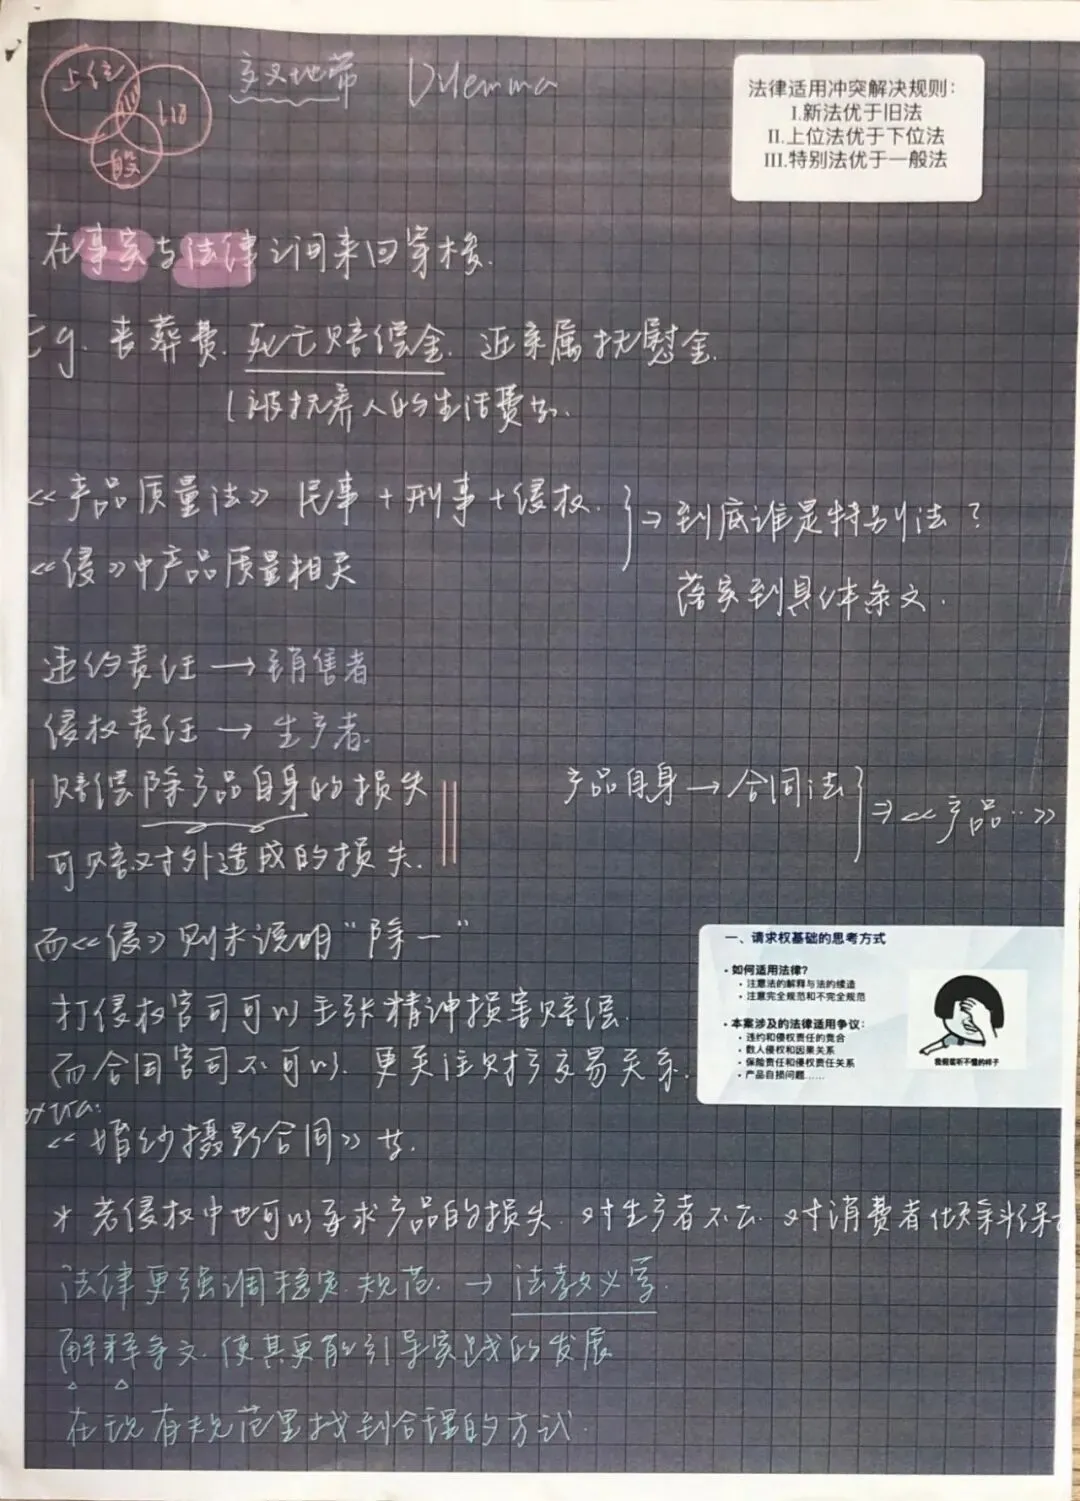 上位
旧
一般
交叉地带 Dilemma
法律适用冲突解决规则：
I.新法优于旧法
II.上位法优于下位法
III.特别法优于一般法
在事实与法律之间来回穿梭.
Eg. 丧葬费. 死亡赔偿金. 近亲属抚慰金.
(被扶养人的生活费
《产品质量法》民事+刑事+侵权.
《侵》中产品质量相关
→到底谁是特别法？
落实到具体条文.
违约责任→销售者
侵权责任→生产者.
赔偿除产品自身的损失
可赔对外造成的损失.
产品自身→合同法
⇒《产品…》
而《侵》则未说明“除一”
打侵权官司可以主张精神损害赔偿.
而合同官司不可以. 更关注财产交易关系.
extra:
《婚纱摄影合同》
一、请求权基础的思考方式
• 如何适用法律?
• 注意法的解释与法的续造
• 注意完全规范和不完全规范
• 本案涉及的法律适用争议:
• 违约和侵权责任的竞合
• 数人侵权和因果关系
• 保险责任和侵权责任关系
• 产品自损问题……
我假装听不懂的样子
* 若侵权中也可以要求产品的损失. 对生产者不公. 对消费者倾斜保
法律更强调稳定. 规范. → 法教义学.
解释条文. 使其更能引导实践的发展
在现有规范里找到合理的方式.